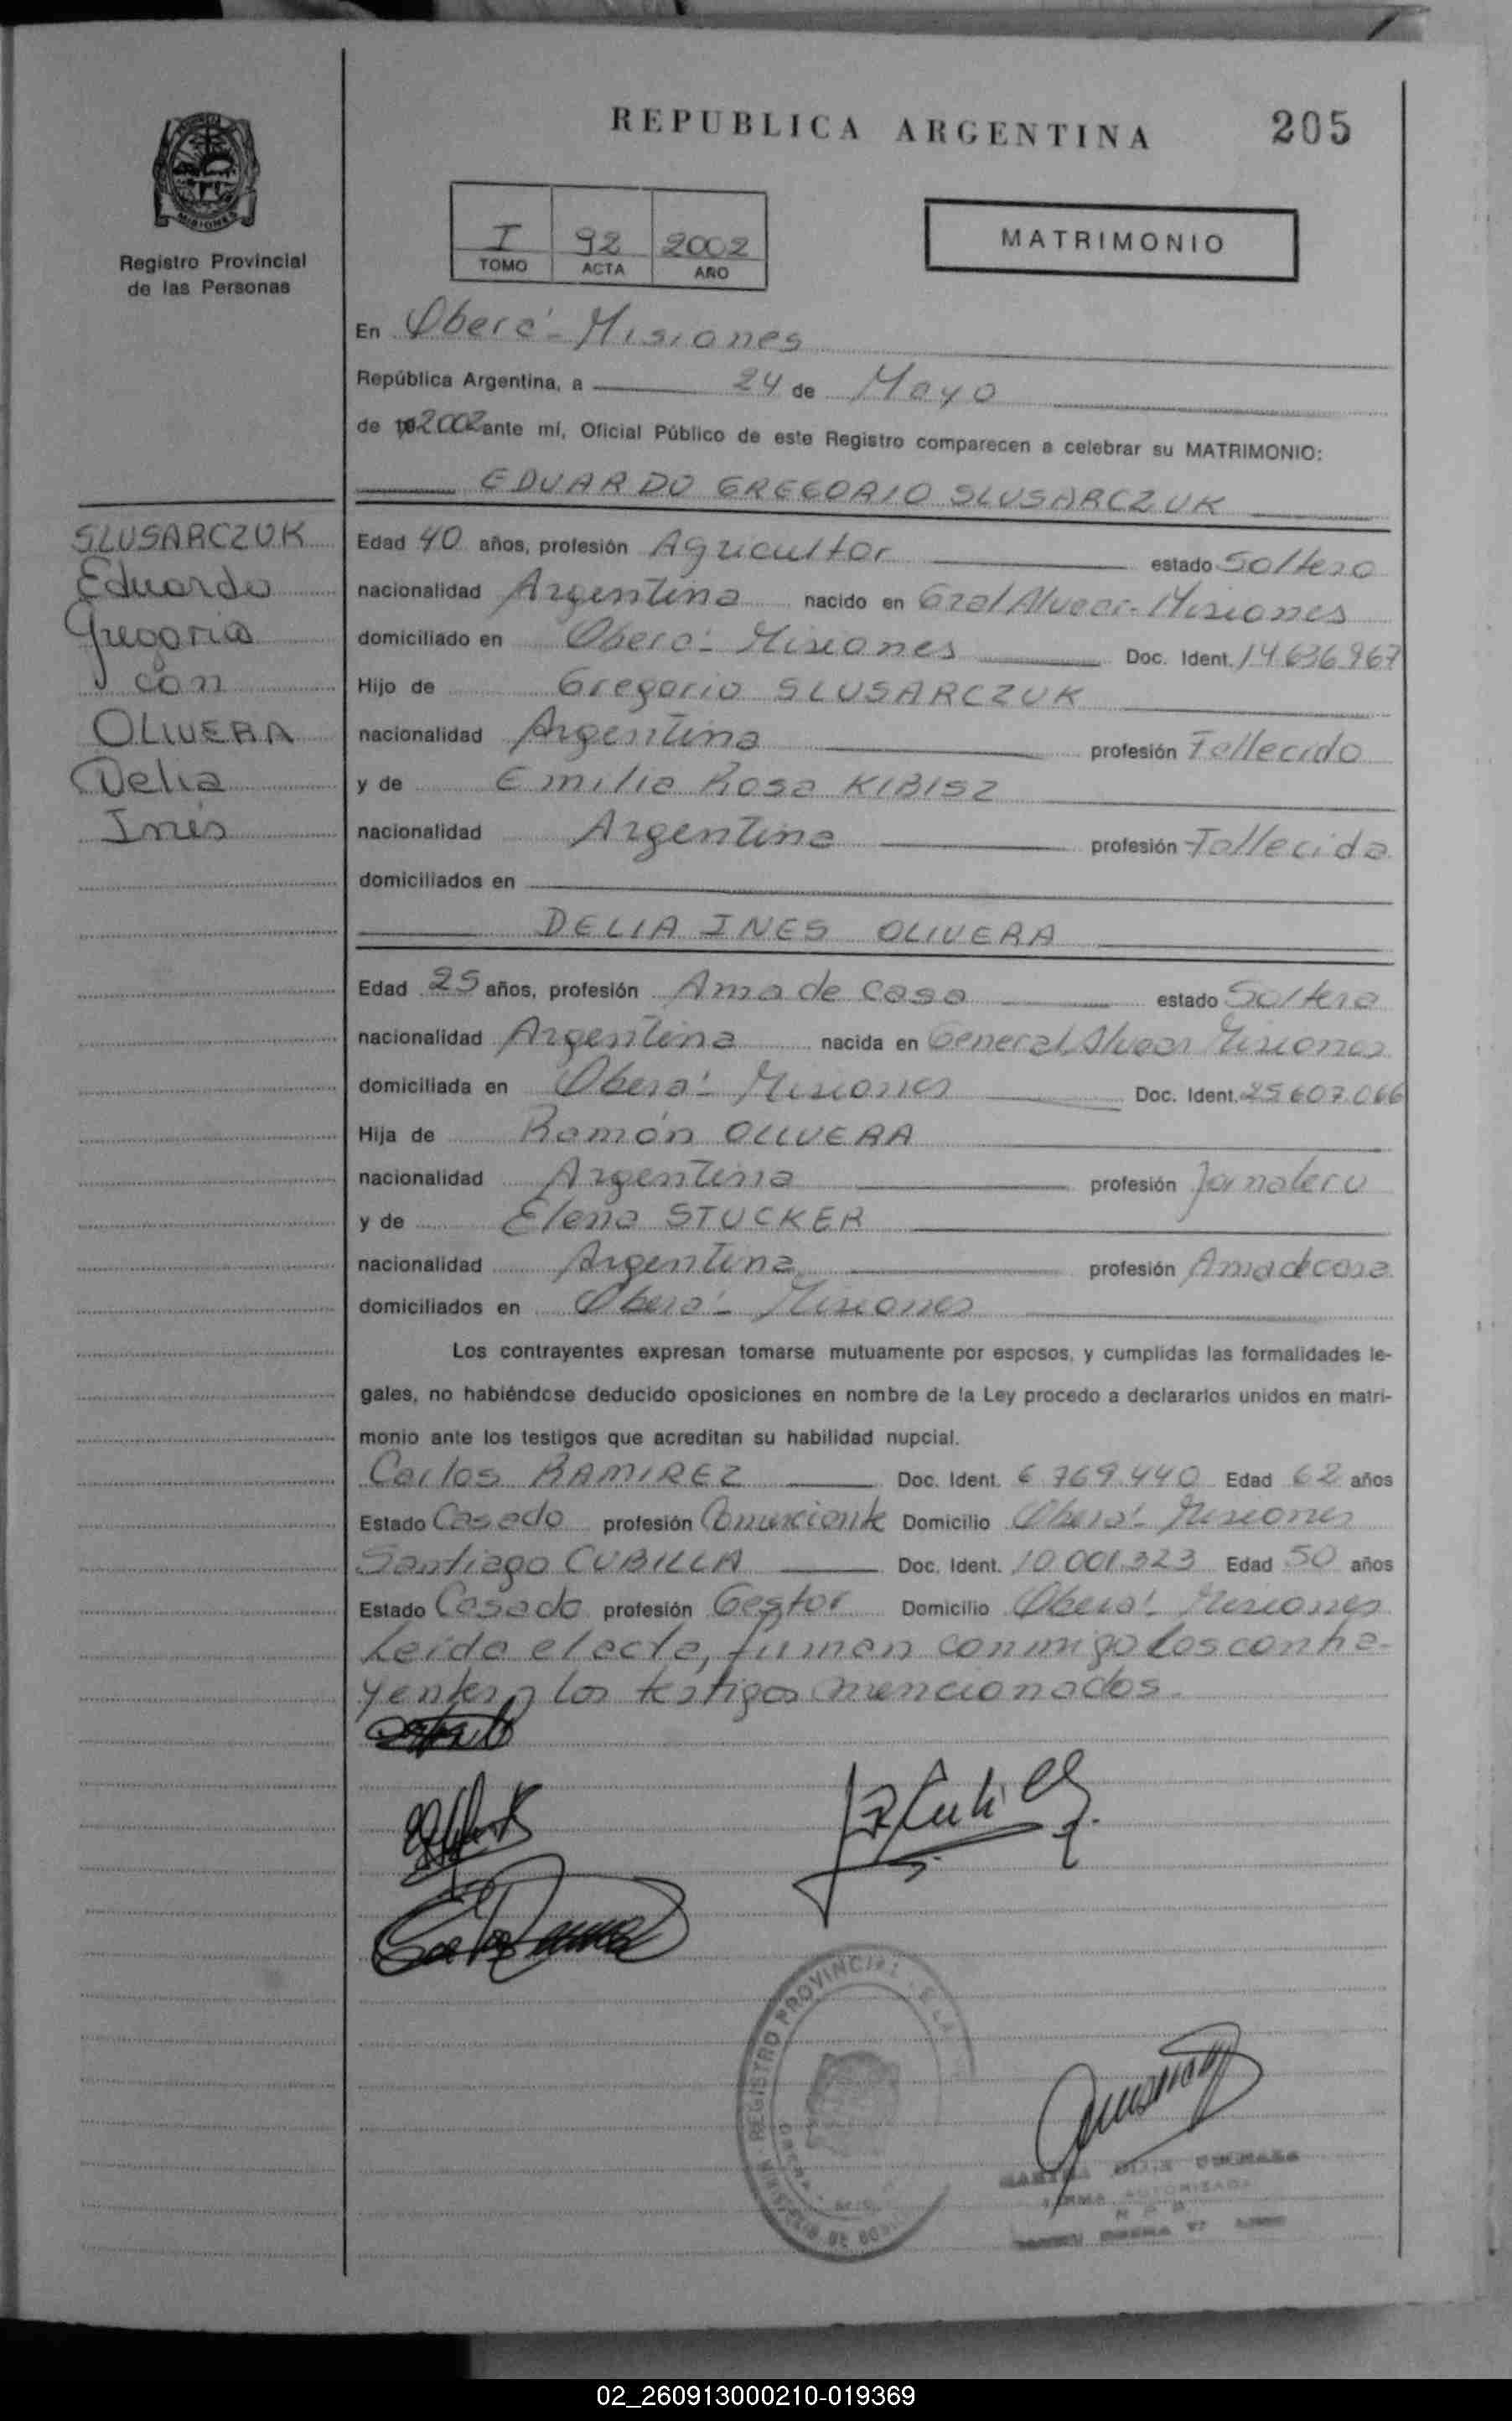 REPUBLICA ARGENTINA
205
MISIONES
Registro Provincial
de las Personas
I 92 2002
TOMO ACTA AÑO
MATRIMONIO
En Oberá - Misiones
República Argentina, a 24 de Mayo
de 2002 ante mí, Oficial Público de este Registro comparecen a celebrar su MATRIMONIO:
EDUARDO GREGORIO SLUSARCZUK
SLUSARCZUK
Eduardo
Gregorio
con
OLIVERA
Delia
Inés
Edad 40 años, profesión Agricultor estado Soltero
nacionalidad Argentina nacido en Gral Alvear - Misiones
domiciliado en Oberá - Misiones Doc. Ident. 14.636.967
Hijo de Gregorio SLUSARCZUK
nacionalidad Argentina profesión Fallecido
y de Emilia Rosa KIBISZ
nacionalidad Argentina profesión Fallecida
domiciliados en
DELIA INES OLIVERA
Edad 25 años, profesión Ama de Casa estado Soltera
nacionalidad Argentina nacida en General Alvear Misiones
domiciliada en Oberá - Misiones Doc. Ident. 25.607.066
Hija de Ramón OLIVERA
nacionalidad Argentina profesión Jornalero
y de Elena STUCKER
nacionalidad Argentina profesión Ama de casa
domiciliados en Oberá - Misiones
Los contrayentes expresan tomarse mutuamente por esposos, y cumplidas las formalidades le-
gales, no habiéndose deducido oposiciones en nombre de la Ley procedo a declararlos unidos en matri-
monio ante los testigos que acreditan su habilidad nupcial.
Carlos RAMIREZ Doc. Ident. 6.769.440 Edad 62 años
Estado Casado profesión Comerciante Domicilio Oberá - Misiones
Santiago CUBILLA Doc. Ident. 10.001.323 Edad 50 años
Estado Casado profesión Gestor Domicilio Oberá - Misiones
Leída el acta, firman conmigo los contra-
yentes y los testigos mencionados.
REGISTRO PROVINCIAL DE LA
FIRMA AUTORIZADA
02_260913000210-019369